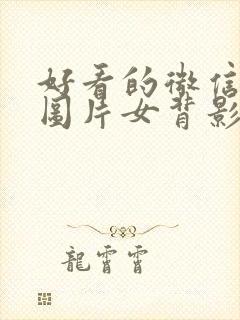 好看的微信
圖片女背影
龍霄霄